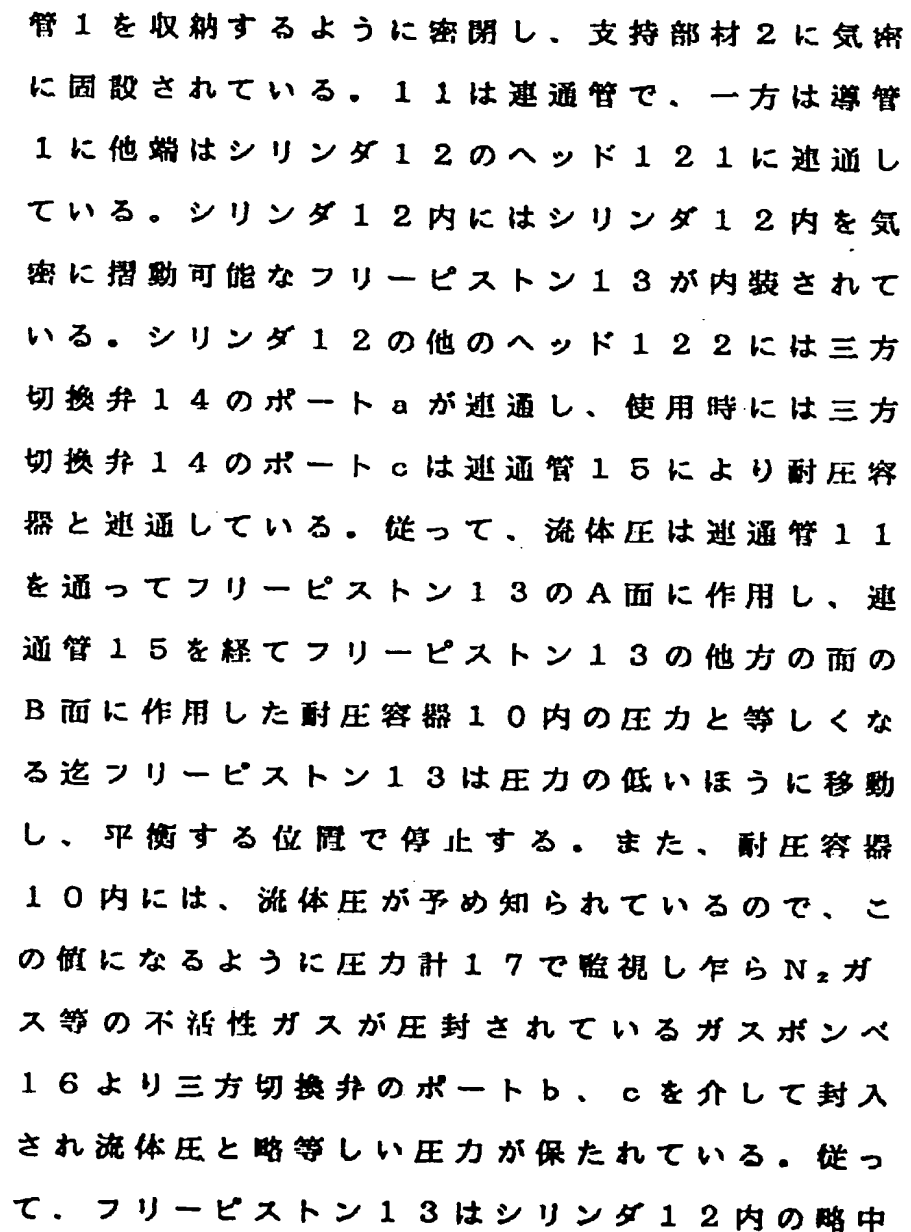 管１を収納するように密閉し、支持部材２に気密
に固設されている。１１は連通管で、一方は導管
１に他端はシリンダ１２のヘッド１２１に連通し
ている。シリンダ１２内にはシリンダ１２内を気
密に摺動可能なフリーピストン１３が内装されて
いる。シリンダ１２の他のヘッド１２２には三方
切換弁１４のポートａが連通し、使用時には三方
切換弁１４のポートｃは連通管１５により耐圧容
器と連通している。従って、流体圧は連通管１１
を通ってフリーピストン１３のＡ面に作用し、連
通管１５を経てフリーピストン１３の他方の面の
Ｂ面に作用した耐圧容器１０内の圧力と等しくな
る迄フリーピストン１３は圧力の低いほうに移動
し、平衡する位置で停止する。また、耐圧容器
１０内には、流体圧が予め知られているので、こ
の値になるように圧力計１７で監視し乍らＮ₂ガ
ス等の不活性ガスが圧封されているガスボンベ
１６より三方切換弁のポートｂ、ｃを介して封入
され流体圧と略等しい圧力が保たれている。従っ
て、フリーピストン１３はシリンダ１２内の略中